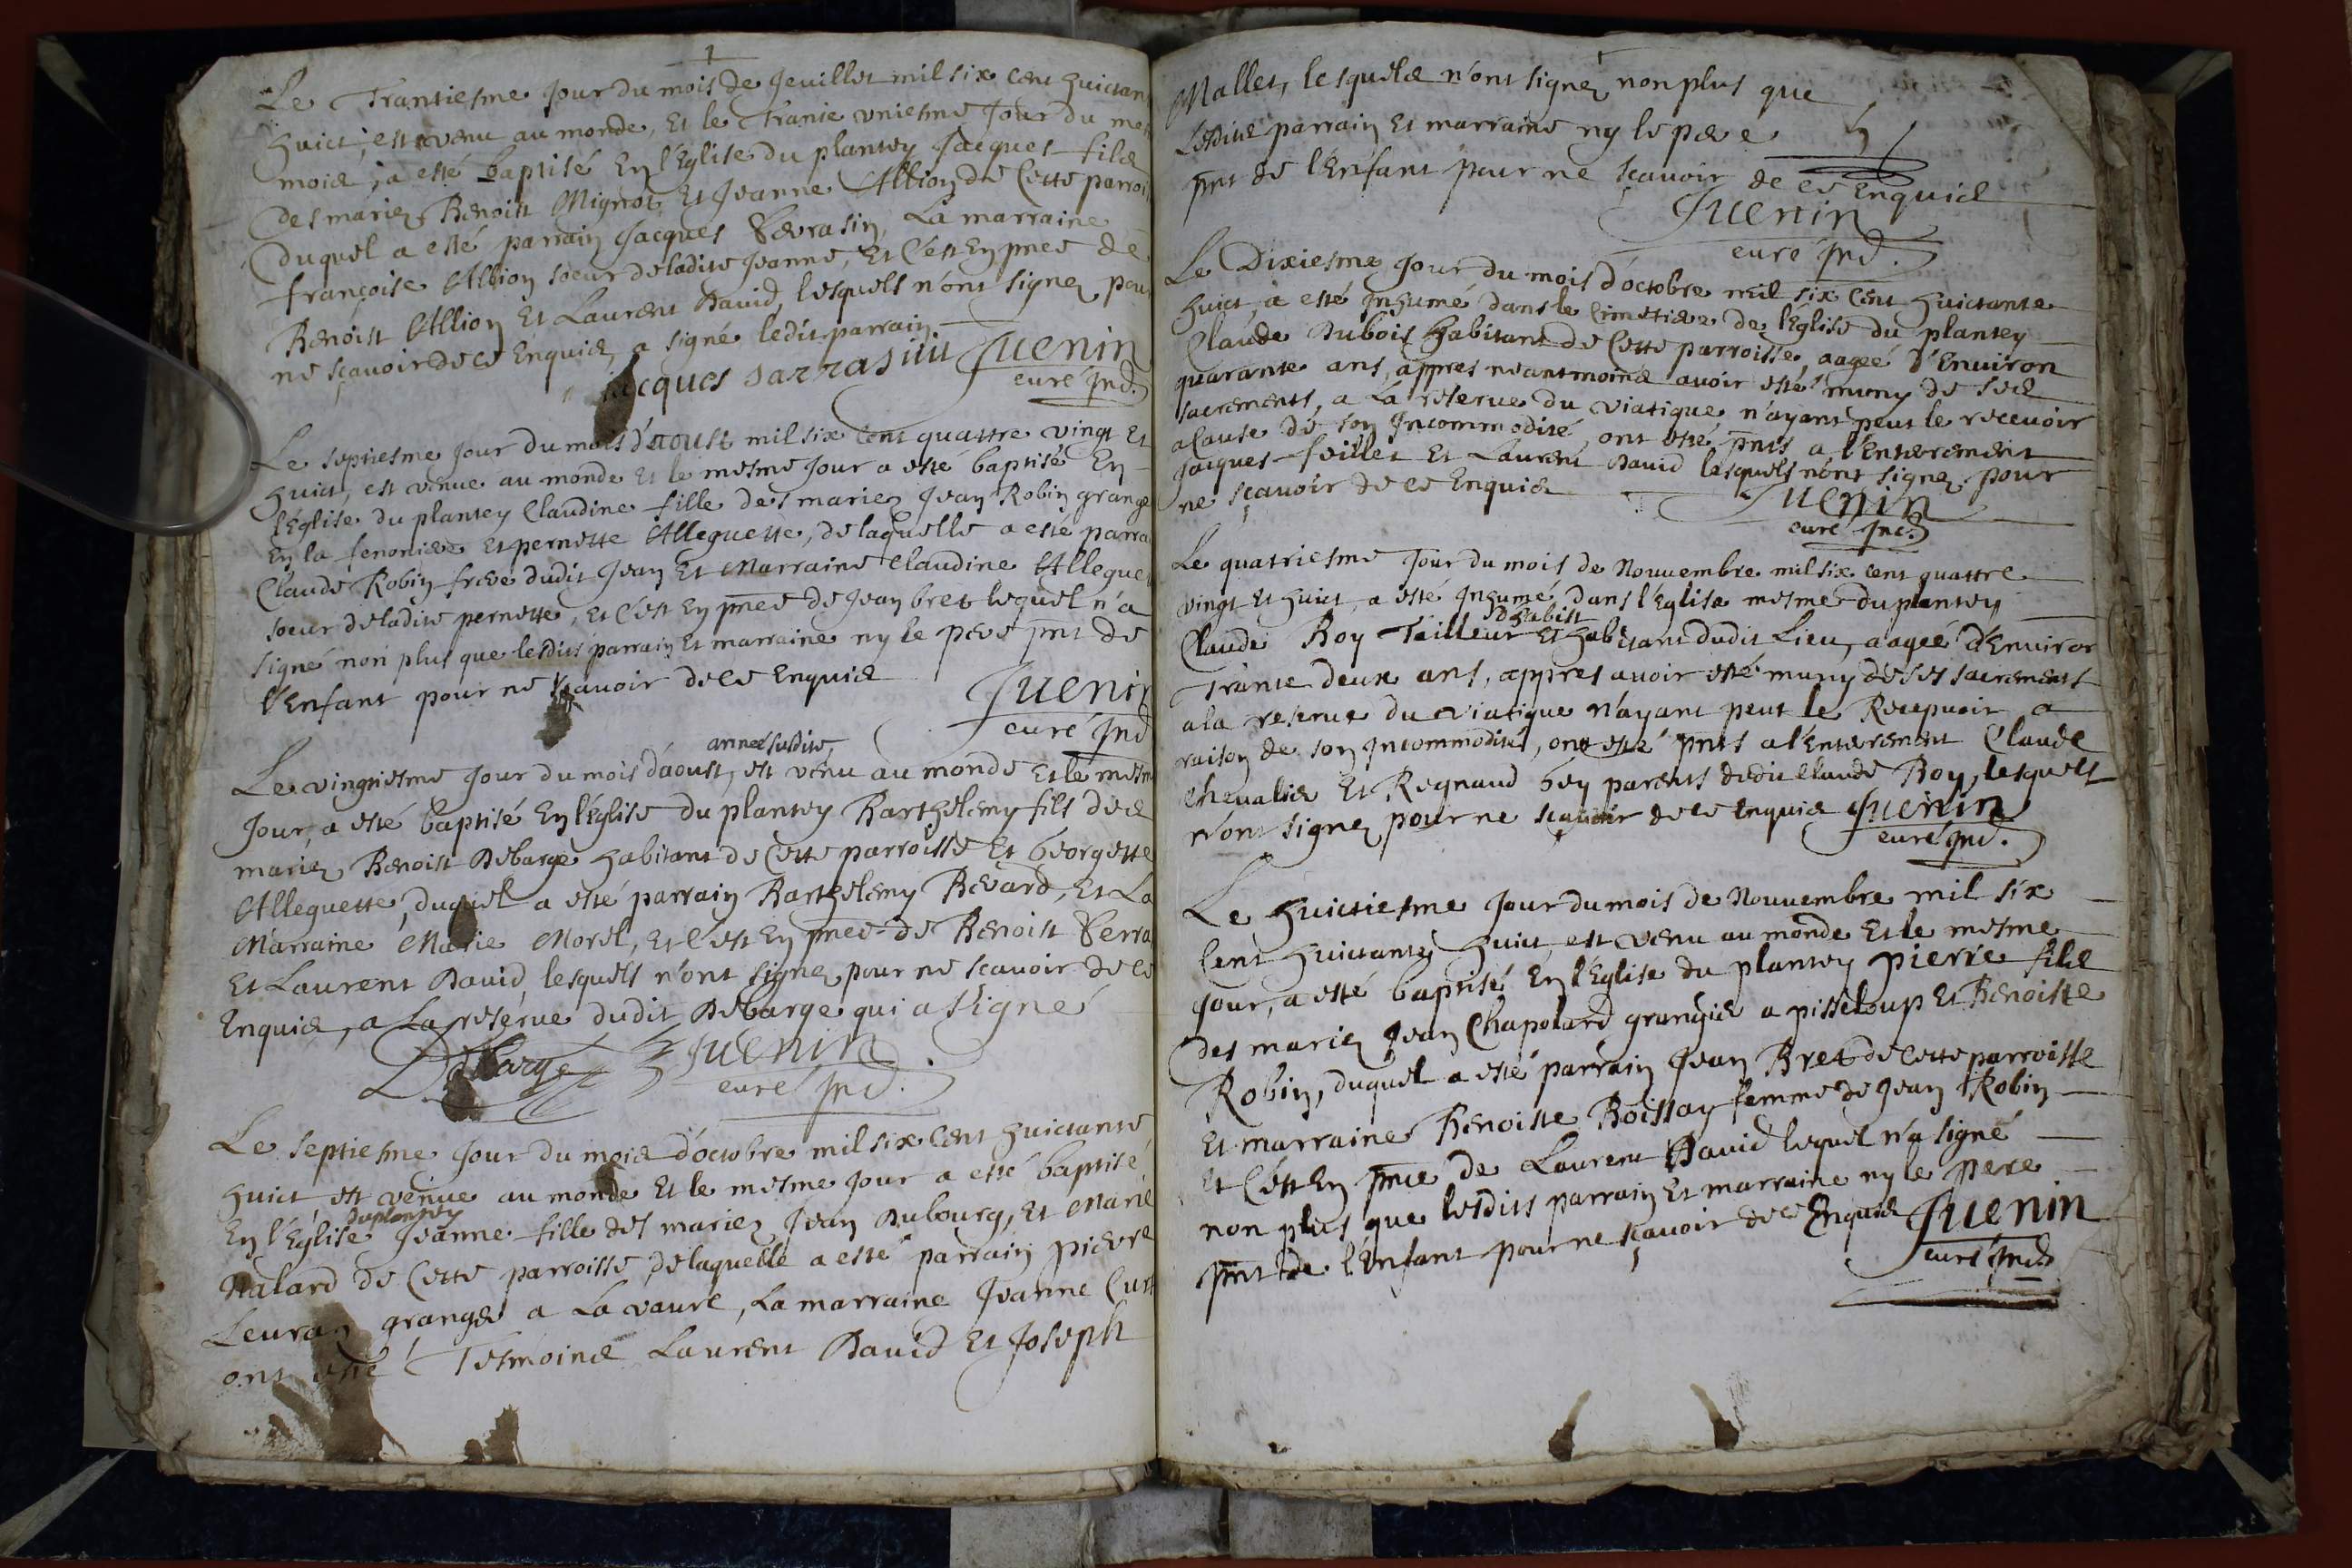 Le Trantiesme jour du mois de Jeuillet mil six cent huictan
huict, est venu au monde, Et le Trante vniesme Jour du me
mois, a esté baptisé En l'Eglise du plantey Jacques fils
des mariez Benoist Mignot Et Jeanne Allion de Cette parroi
duquel a esté parrain Jacques Serrasin, La marraine
françoise Allion soeur deladite Jeanne, Et C'est En pnce de
Benoist Allion Et Laurent David, lesquels n'ont signez pour
ne sçavoir de ce Enquis, a signé ledit parrain.
jacques sarrasin Juenin
curé Ind.
Le septiesme jour du mois d'aoust mil six Cent quattre vingt Et
huict, est venue au monde Et le mesme Jour a esté baptisé En
l'Eglise du plantey Claudine fille des mariez Jean Robin grange
En la fenoniere Et pernette Alleguette, de laquelle a esté parra
Claude Robin frere dudit Jean Et Marraine Claudine Allegue
soeur deladite pernette, Et C'est En pnce de Jean bret lequel n'a
signé non plus que lesdits parrain Et marraine ny le pere pnt de
l'Enfant pour ne sçavoir de ce Enquis
Juenin
curé Ind
année susdite,
Le vingtiesme Jour du mois d'aoust, est venu au monde Et le mesm
Jour, a esté baptisé En l'Eglise du plantey Barthelemy fils des
mariez Benoist Debarge habitant de Cette parroisse Et Georgette
Alleguette, duquel a esté parrain Barthelemy Bevard, Et La
Marraine Marie Morel, Et C'est En pnce de Benoist Serra
Et Laurent David, lesquels n'ont signez pour ne scavoir de ce
Enquis, a La reserue dudit Debarge qui a signé
Debarge Juenin
curé Ind.
Le septiesme Jour du mois d'octobre mil six Cent huictante
huict est venue au monde Et le mesme Jour a esté baptisé
duplantey
En l'Eglise Jeanne fille des mariez Jean Dubourg, Et Marie
Nalard de Cette parroisse, de laquelle a esté parrain pierre
Leuray granger a La vaure, La marraine Jeanne Curt
ont esté Tesmoins Laurent David Et Joseph
Mallet, lesquels n'ont signez non plus que
Lesdits parrain Et marraine ny le pere
pnt de l'Enfant pour ne sçavoir de ce Enquis
Juenin
curé Ind.
Le Dixiesme Jour du mois d'octobre mil six Cent huictante
huict, a esté Inhumé dans le Cimetiere de l'Eglise du plantey
Claude Dubois habitant de Cette parroisse, aagée d'Enuiron
quarante ans, appres neantmoins auoir esté muny de ses
sacrements, a La reserue du viatique n'ayant peut le receuoir
a Cause de son Incommodité, ont esté pnts a l'Enterement
Jacques feillet Et Laurent David lesquels n'ont signez pour
ne sçavoir de ce Enquis
Juenin
curé Ind.
Le quatriesme Jour du mois de Nouuembre mil six Cent quattre
vingt Et huict, a esté Inhumé dans l'Eglise mesme du plantey
D'habist
Claude Roy Tailleur Et habitant dudit Lieu, aagée d'Enuiron
Trante deux ans, appres auoir esté muny de ses sacrements
a la reserue du viatique n'ayant peut le Recepuoir a
raison de son Incommodité, ont esté pnts a l'Enterement Claude
Chevalier Et Regnaud Gey parents dudit Claude Roy, lesquels
n'ont signez pour ne sçavoir de ce Enquis Juenin
curé Ind.
Le huictiesme Jour du mois de Nouuembre mil six
Cent huictante huict est venu au monde Et le mesme
Jour, a esté baptisé En l'Eglise du plantey pierre fils
des mariez Jean Chapolard granger a pisseloup Et Benoiste
Robin, duquel a esté parrain Jean Bret de Cette parroisse
Et marraine Benoiste Boissay femme de Jean Robin
Et C'est En pnce de Laurent David lequel n'a signé
non plus que lesdits parrain Et marraine ny le pere
pnt de l'Enfant pour ne sçavoir de ce Enquis Juenin
curé Ind.